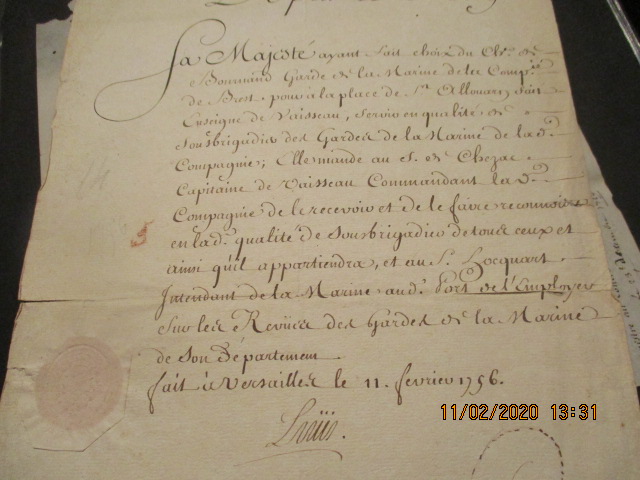 Sa Majesté ayant fait choix du Ch.er de
Garde de la Marine de la Comp.ie
de Brest pour à la place de S.r Allouarn fait
Enseigne de Vaisseau, servir en qualité de
sousbrigadier des Gardes de la Marine de la d.e
Compagnie; Elle mande au S. de Chezac
Capitaine de Vaisseau Commandant lad.e
Compagnie de le recevoir et de le faire reconnoitre
en lad.e qualité de Sousbrigadier de tous ceux et
ainsi qu'il appartiendra, et au S.r Hocquart
Intendant de la Marine aud. Port de l'Employer
sur les Revües des Gardes de la Marine
de son Département.
fait à Versailles le 11. fevrier 1756.
Loüis.
11/02/2020 13:31